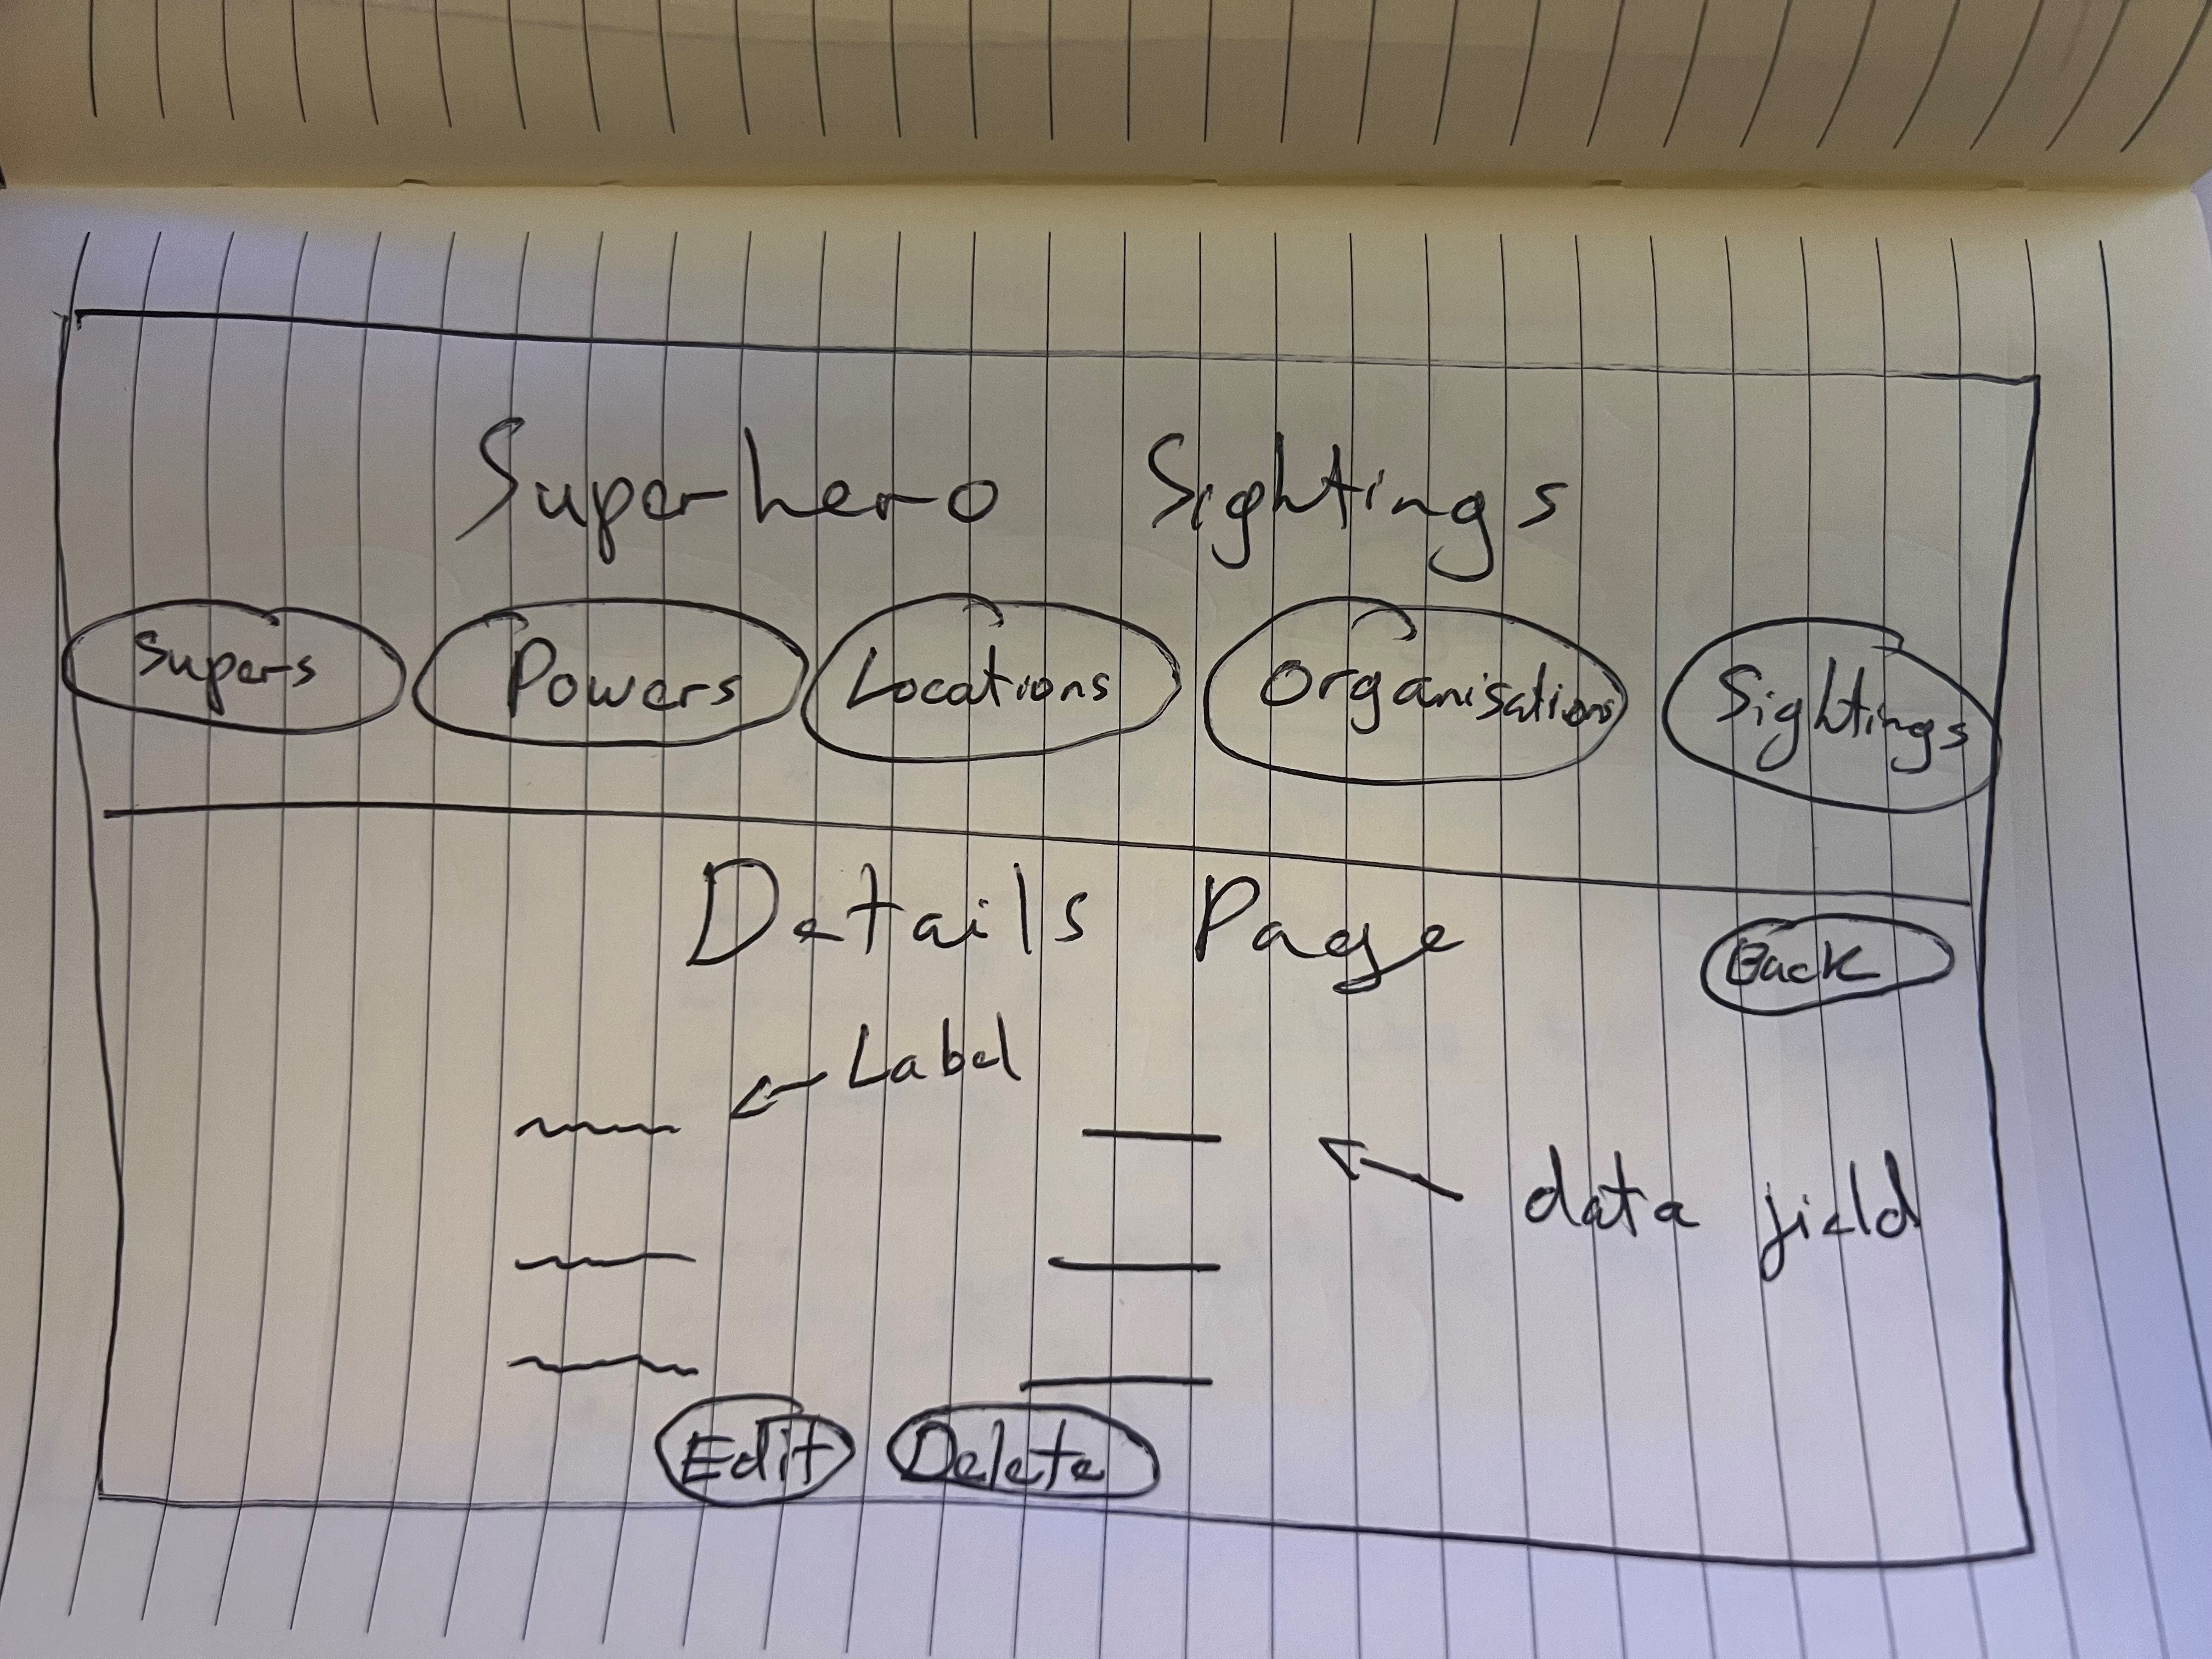 Superhero Sightings
Supers Powers Locations Organisations Sightings
Details Page
Back
Label
data field
Edit Delete